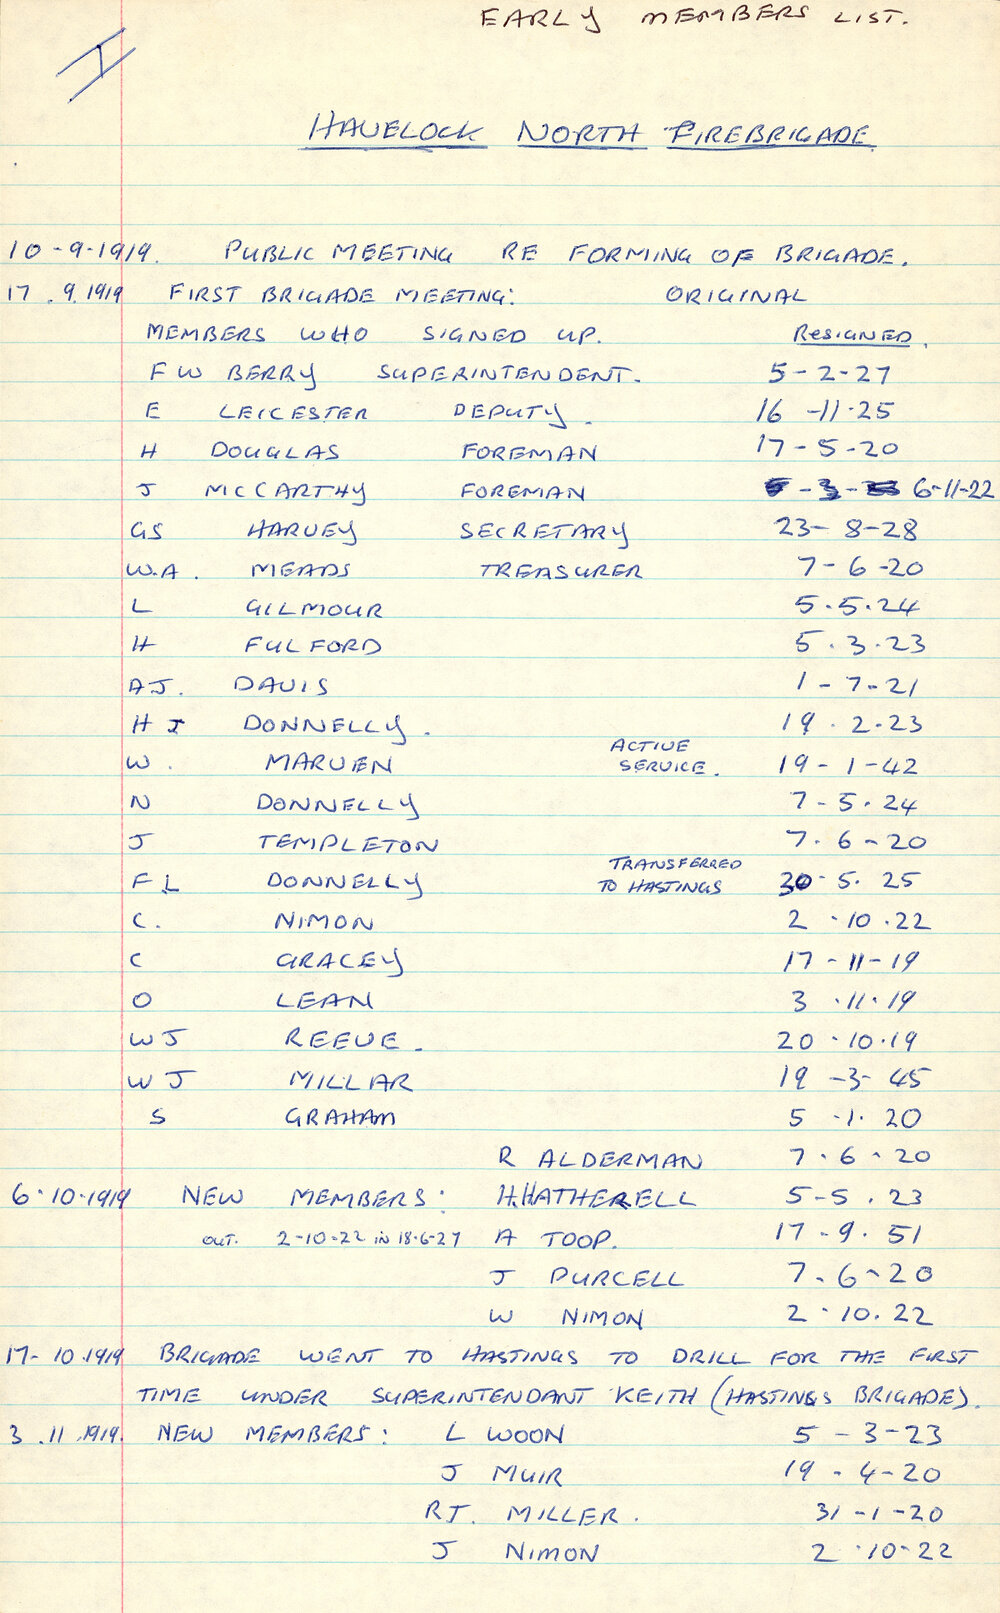 EARLY MEMBERS LIST.
I
HAVELOCK NORTH FIREBRIGADE
10-9-1919. PUBLIC MEETING RE FORMING OF BRIGADE.
17.9.1919 FIRST BRIGADE MEETING: ORIGINAL
MEMBERS WHO SIGNED UP. RESIGNED.
F W BERRY SUPERINTENDENT. 5-2-27
E LEICESTER DEPUTY. 16-11-25
H DOUGLAS FOREMAN 17-5-20
J MCCARTHY FOREMAN 6-11-22
GS HARVEY SECRETARY 23-8-28
W.A. MEADS TREASURER 7-6-20
L GILMOUR 5.5.24
H FULFORD 5.3.23
AJ. DAVIS 1-7-21
H J DONNELLY. 19.2-23
W. MARVEN ACTIVE SERVICE. 19-1-42
N DONNELLY 7-5.24
J TEMPLETON 7.6-20
F L DONNELLY TRANSFERRED TO HASTINGS 30-5.25
C. NIMON 2.10.22
C GRACEY 17-11-19
O LEAN 3.11.19
W J REEVE. 20.10.19
W J MILLAR 19-3-45
S GRAHAM 5-1.20
R ALDERMAN 7.6.20
6.10.1919 NEW MEMBERS: H.HATHERELL 5-5.23
OUT. 2-10-22 IN 18.6-27 A TOOP. 17-9.51
J PURCELL 7.6-20
W NIMON 2.10.22
17-10.1919 BRIGADE WENT TO HASTINGS TO DRILL FOR THE FIRST
TIME UNDER SUPERINTENDANT KEITH (HASTINGS BRIGADE).
3.11.1919. NEW MEMBERS: L WOON 5-3-23
J MUIR 19.4-20
RJ. MILLER. 31-1-20
J NIMON 2.10-22